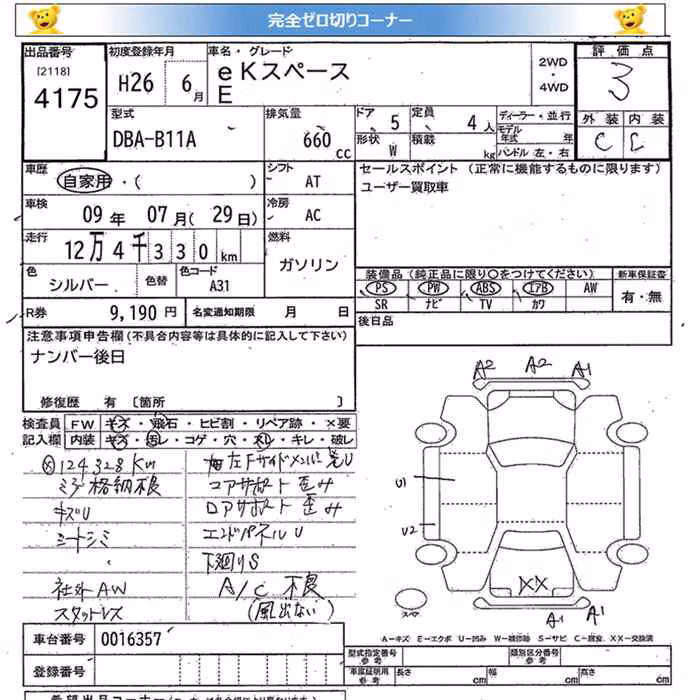 完全ゼロ切りコーナー
出品番号 初度登録年月 車名・グレード 評価点
[2118]
4175 H26 6月 eKスペース 2WD ・ 4WD 3
E
型式 排気量 ドア 5 定員 4人 ディーラー・並行 外装 内装
DBA-B11A 660 cc 形状 W 積載 kg モデル年式 年 C C
ハンドル 左・右
車歴 シフト セールスポイント (正常に機能するものに限ります)
自家用・( ) AT ユーザー買取車
車検 冷房
09年 07月(29日) AC
走行 燃料
12万4千330km ガソリン
色 シルバー 色替 色コード A31
装備品 (純正品に限り○をつけてください) 新車保証書
PS PW ABS エアB AW 有・無
SR ナビ TV カワ
R券 9,190円 名変通知期限 月 日 後日品
注意事項申告欄 (不具合内容等は具体的に記入して下さい)
ナンバー後日
修復歴 有 〔箇所 〕
検査員 FW キズ・飛石・ヒビ割・リペア跡・×要
記入欄 内装 キズ・汚レ・コゲ・穴・スレ・キレ・破レ
124328Km
左Fサイドメンバー U
ミラー格納不良
コアサポート歪み
キズU
ロアサポート歪み
シートシミ
エンドパネルU
下廻りS
社外AW
A/C 不良
スタットレス
(風出ない)
A2 A2 A1
U1
U2
XX
スペア
A1 A1
A-キズ E-エクボ U-凹み W-補修跡 S-サビ C-腐食 XX-交換済
車台番号 0016357
登録番号
型式指定番号 参考 類別区分番号 参考
車庫証明用 参考 長さ cm 幅 cm 高さ cm